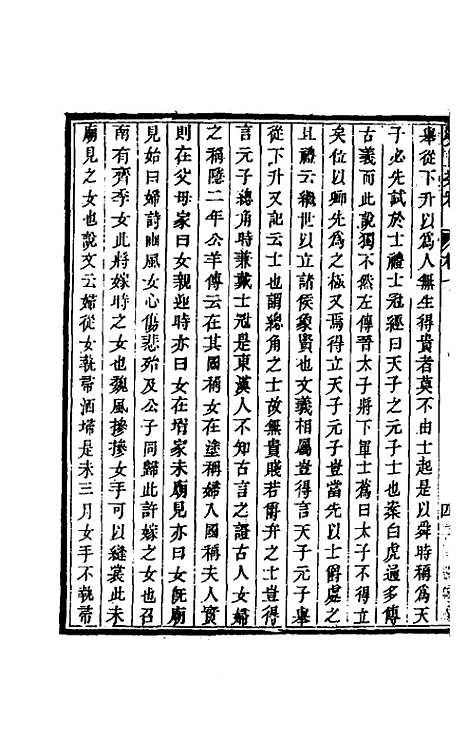 舉從下升以爲人無生得貴者莫不由士起是以舜時稱爲天
子必先試於士禮士冠經曰天子之元子士也案白虎通多傳
古義而此說獨不然左傳晉太子將下軍士蔿曰太子不得立
矣位以卿先爲之極又焉得立天子元子豈當先以士爵處之
且禮云繼世以立諸侯象賢也文義相屬豈得言天子元子舉
從下升又記云士也謂總角之士故無貴賤若爵弁之士豈得
言元子總角時兼戴士冠是東漢人不知古言之證古人女婦
之稱隱二年公羊傳云在其國稱女在塗稱婦入國稱夫人實
則在父母家曰女親迎時亦曰女在壻家未廟見亦曰女旣廟
見始曰婦詩豳風女心傷悲殆及公子同歸此許嫁之女也召
南有齊季女此將嫁時之女也魏風摻摻女手可以縫裳此未
廟見之女也說文云婦從女執帚洒埽是未三月女手不執帚